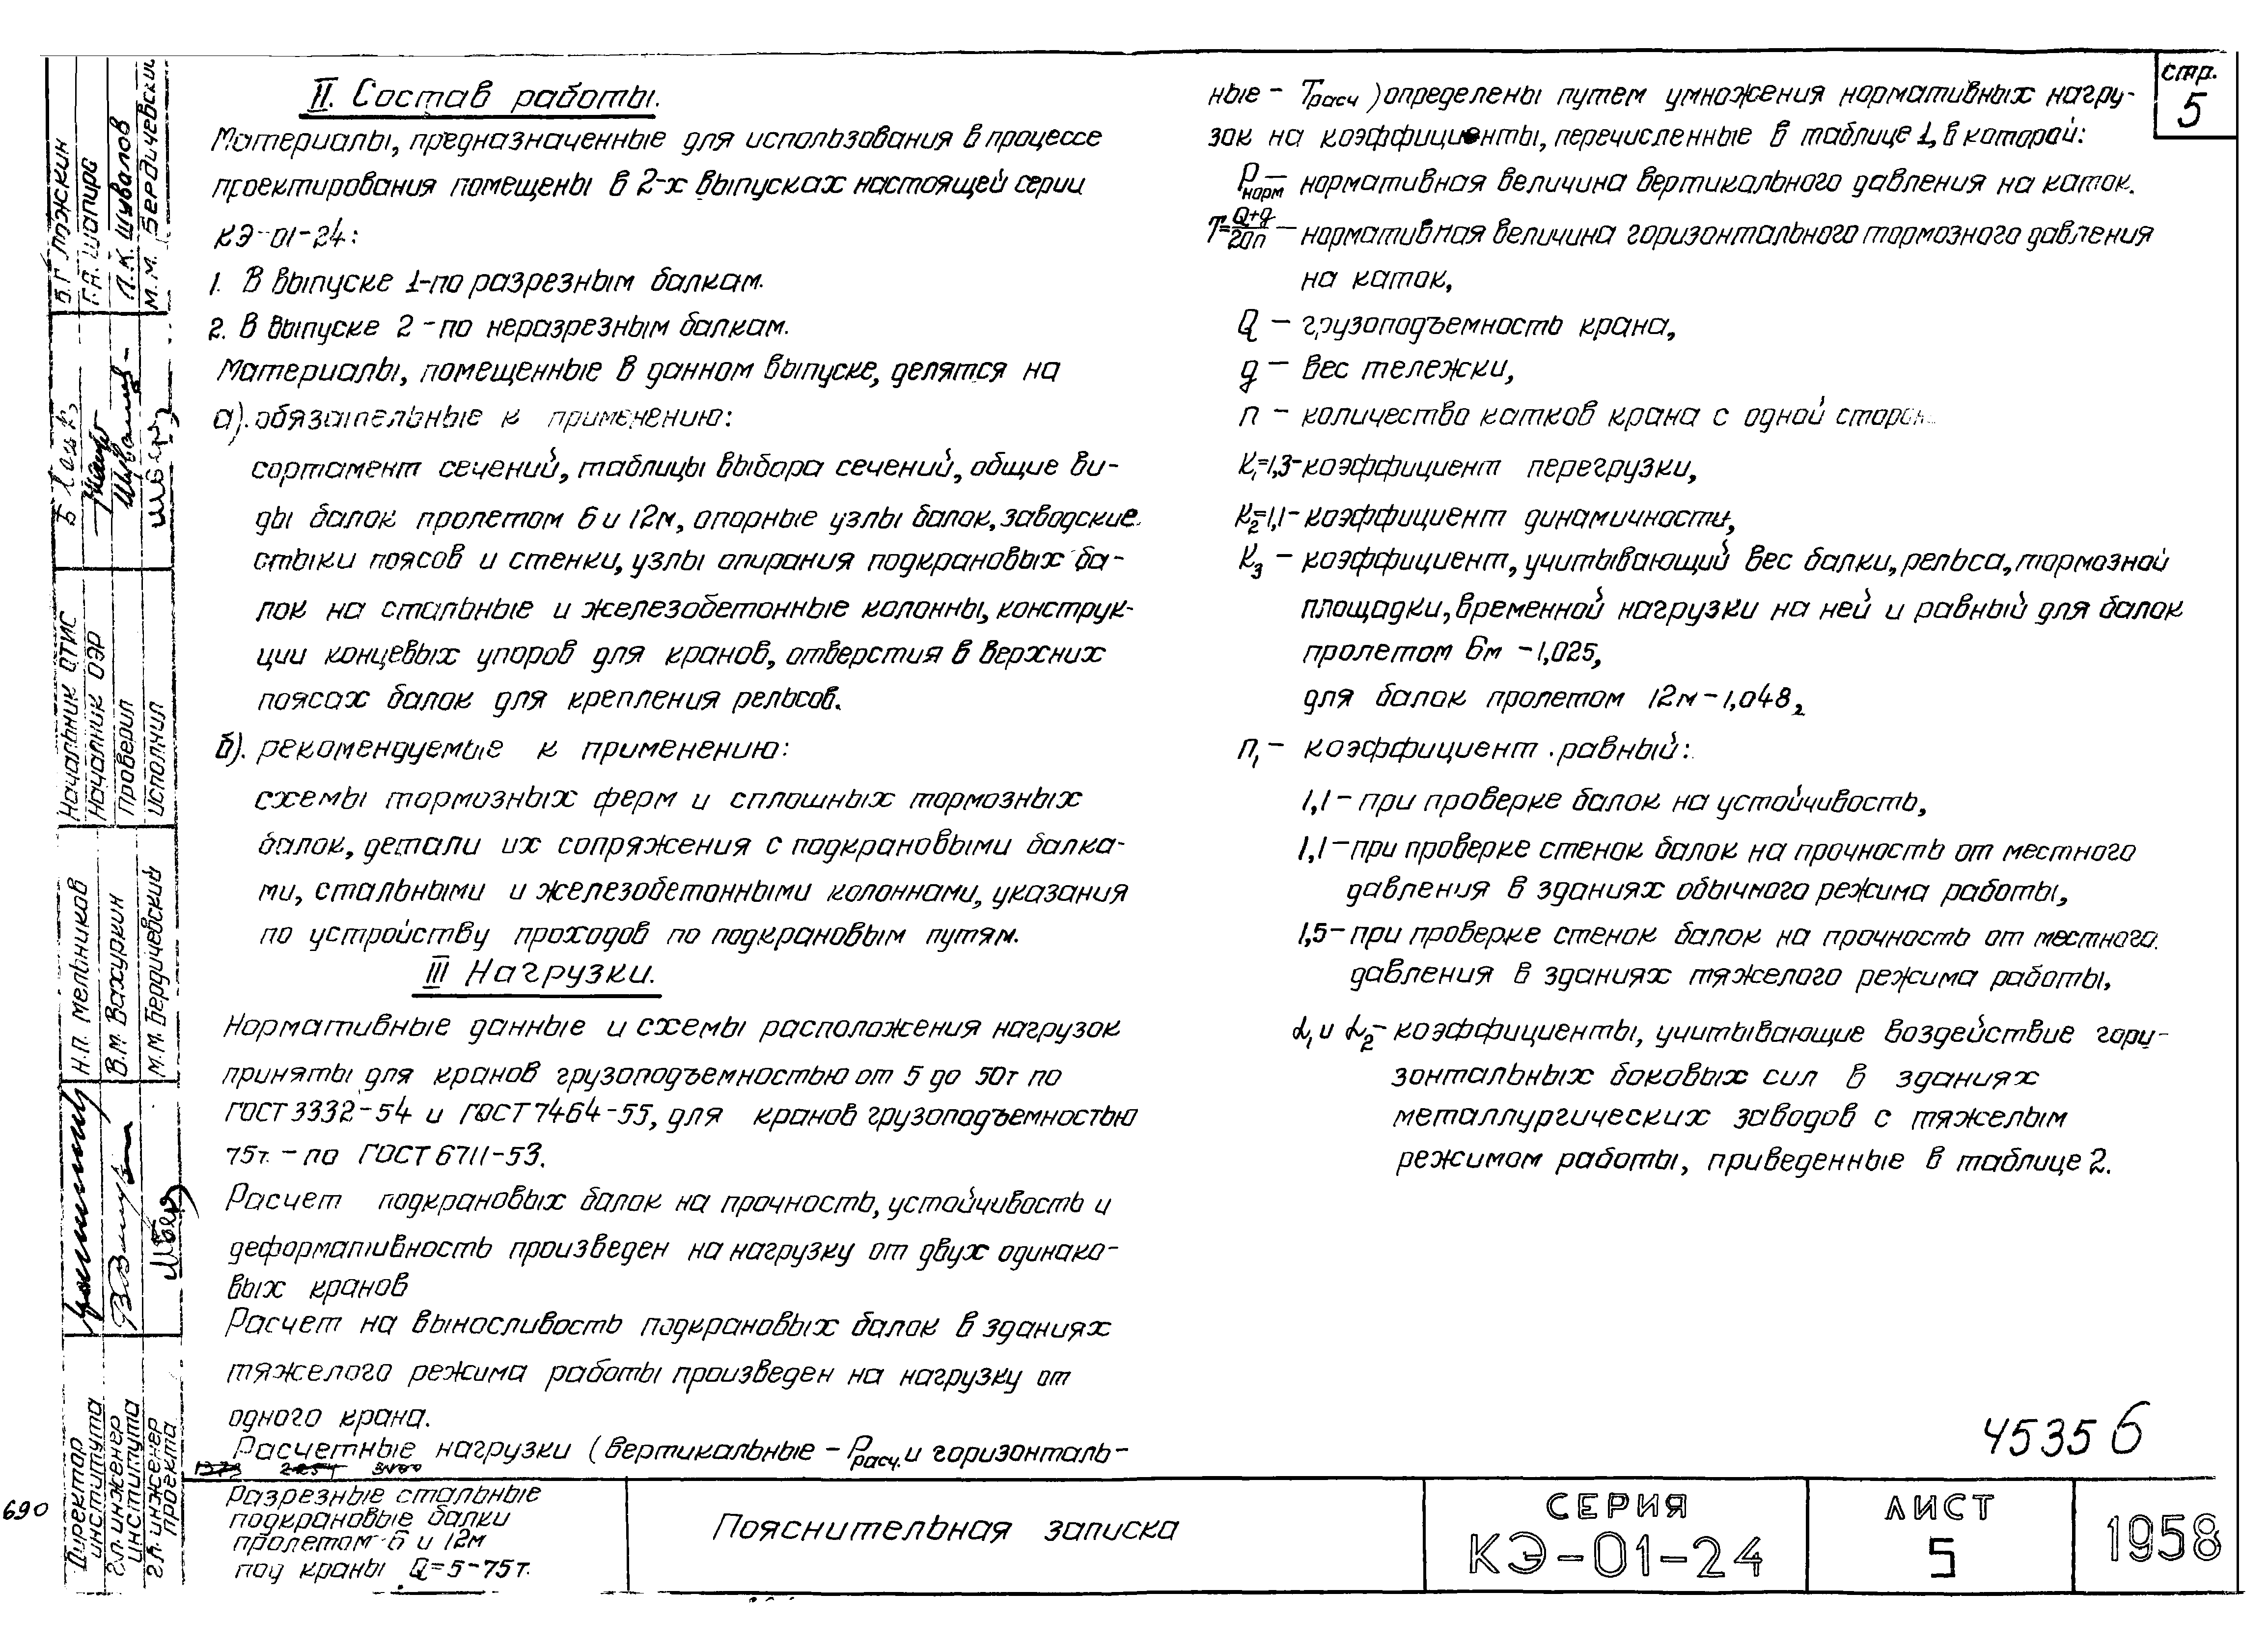 II. Состав работы.
Материалы, предназначенные для использования в процессе
проектирования помещены в 2-х выпусках настоящей серии
КЭ-01-24:
1. В выпуске 1-по разрезным балкам.
2. В выпуске 2-по неразрезным балкам.
Материалы, помещенные в данном выпуске, делятся на
а). обязательные к применению:
сортамент сечений, таблицы выбора сечений, общие ви-
ды балок пролетом 6 и 12м, опорные узлы балок, заводские
стыки поясов и стенки, узлы опирания подкрановых ба-
лок на стальные и железобетонные колонны, конструк-
ции концевых упоров для кранов, отверстия в верхних
поясах балок для крепления рельсов.
б). рекомендуемые к применению:
схемы тормозных ферм и сплошных тормозных
балок, детали их сопряжения с подкрановыми балка-
ми, стальными и железобетонными колоннами, указания
по устройству проходов по подкрановым путям.
III Нагрузки.
Нормативные данные и схемы расположения нагрузок
приняты для кранов грузоподъемностью от 5 до 50т по
ГОСТ 3332-54 и ГОСТ 7464-55, для кранов грузоподъемностью
75т. - по ГОСТ 6711-53.
Расчет подкрановых балок на прочность, устойчивость и
деформативность произведен на нагрузку от двух одинако-
вых кранов
Расчет на выносливость подкрановых балок в зданиях
тяжелого режима работы произведен на нагрузку от
одного крана.
Расчетные нагрузки (вертикальные - Pрасч. и горизонталь-
ные - Tрасч) определены путем умножения нормативных нагру-
зок на коэффициенты, перечисленные в таблице 1, в которой:
Pнорм — нормативная величина вертикального давления на каток.
T=Q+g/20n — нормативная величина горизонтального тормозного давления
на каток,
Q — грузоподъемность крана,
g — вес тележки,
n - количество катков крана с одной сторон
K₁=1,3-коэффициент перегрузки,
K₂=1,1-коэффициент динамичности,
K₃ - коэффициент, учитывающий вес балки, рельса, тормозной
площадки, временной нагрузки на ней и равный для балок
пролетом 6м -1,025,
для балок пролетом 12м-1,048,
n₁ - коэффициент равный:
1,1- при проверке балок на устойчивость,
1,1-при проверке стенок балок на прочность от местного
давления в зданиях обычного режима работы,
1,5-при проверке стенок балок на прочность от местного
давления в зданиях тяжелого режима работы,
α₁ и α₂-коэффициенты, учитывающие воздействие гори-
зонтальных боковых сил в зданиях
металлургических заводов с тяжелым
режимом работы, приведенные в таблице 2.
стр.
5
45356
690
1373 2254
Разрезные стальные
подкрановые балки
пролетом 6 и 12м
под краны Q=5-75т.
Пояснительная записка
СЕРИЯ
КЭ-01-24
ЛИСТ
5
1958
Директор института
Н.П. Мельников
Гл. инженер института
В.М. Вахуркин
Гл. инженер проекта
М.М. Бердичевский
Начальник ОТИС
Б.Г. Ложкин
Начальник ОЭР
Г.А. Шапиро
Проверил
Л.К. Шувалов
Исполнил
М.М. Бердичевский